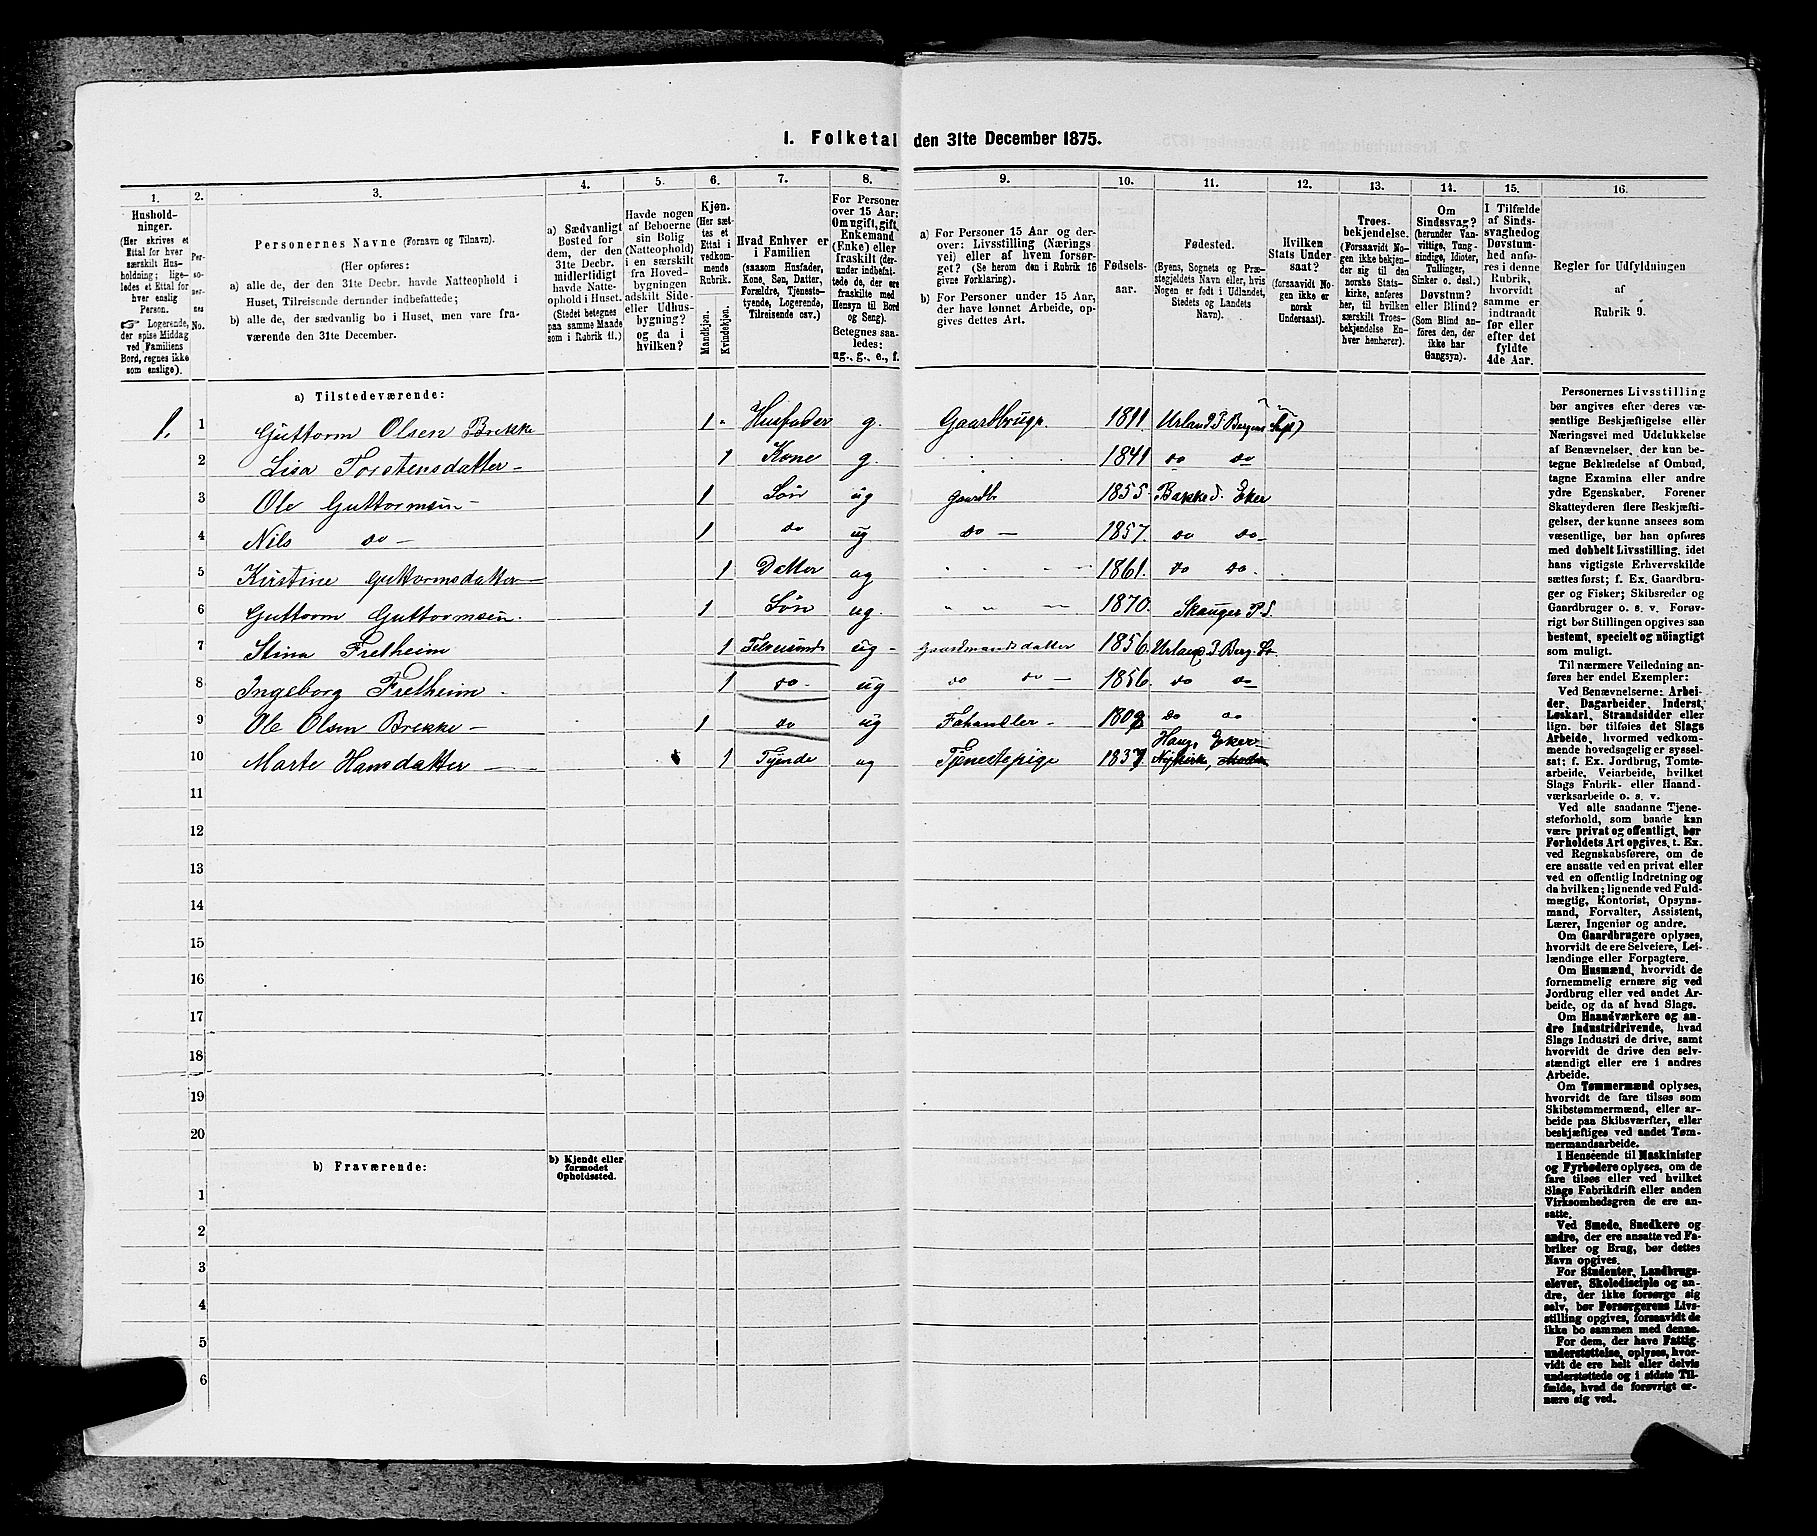 1. Folketal den 31te December 1875.
1. 2. 3. 4. 5. 6. 7. 8. 9. 10. 11. 12. 13. 14. 15. 16.
Hushold-
ninger.
(Her skrives et
Ettal for hver
særskilt Hus-
holdning; lige-
ledes et Ettal for
hver enslig
Person.
☞ Logerende,
der spise Middag
ved Familiens
Bord, regnes ikke
som enslige).
Per-
so-
ner-
nes
No.
Personernes Navne (Fornavn og Tilnavn).
(Her opføres:
a) alle de, der den 31te Decbr. havde Natteophold i
Huset, Tilreisende derunder indbefattede;
b) alle de, der sædvanlig bo i Huset, men vare fra-
værende den 31te December.
a) Sædvanligt
Bosted for
dem, der den
31te Decbr.
midlertidigt
havde Natte-
ophold i Huset.
(Stedet betegnes
paa samme Maade
som i Rubrik 11.)
Havde nogen
af Beboerne
sin Bolig
(Natteophold)
i en særskilt
fra Hoved-
bygningen
adskilt Side-
eller Udhus-
bygning?
og da i
hvilken?
Kjøn.
(Her sæt-
tes et
Ettal i
vedkom-
mende
Rubrik.
Mandkjøn.
Kvindekjøn.
Hvad Enhver er
i Familien
(saasom Husfader,
Kone, Søn, Datter,
Forældre, Tjeneste-
tyende, Logerende,
Tilreisende osv.)
For Personer
over 15 Aar:
Om ugift, gift,
Enkemand
(Enke) eller
fraskilt (der-
under indbefat-
tede de, der ere
fraskilte med
Hensyn til Bord
og Seng).
Betegnes saa-
ledes:
ug., g., e., f.
a) For Personer 15 Aar og der-
over: Livsstilling (Nærings-
vei) eller af hvem forsør-
get? (Se herom den i Rubrik 16
givne Forklaring).
b) For Personer under 15 Aar,
der have lønnet Arbeide, op-
gives dettes Art.
Fødsels-
aar.
Fødested.
(Byens, Sognets og Præ-
stegjeldets Navn eller, hvis
Nogen er født i Udlandet,
Stedets og Landets
Navn).
Hvilken
Stats Under-
saat?
(forsaavidt No-
gen ikke er
norsk
Undersaat).
Troes-
bekjendelse.
(Forsaavidt No-
gen ikke bekjen-
der sig til den
norske Stats-
kirke, anføres
her, til hvilken
særskilt Troes-
bekjendelse En-
hver henhører).
Om
Sindssvag?
(herunder Van-
vittige, Tung-
sindige, Idioter,
Tullinger,
Sinker o. desl.)
Døvstum?
eller Blind?
(Som Blind an-
føres den, der
ikke har
Gangsyn).
I Tilfælde
af Sinds-
svaghed og
Døvstum-
hed anfø-
res i denne
Rubrik,
hvorvidt
samme er
indtraadt
før eller
efter det
fyldte
4de Aar.
Regler for Udfyldningen
af
Rubrik 9.
a) Tilstedeværende:
1. 1 Guttorm Olsen Brekke 1 - Husfader g. Gaardbruge. 1811 Urland P Bergens Stift)
2 Lisa Torstensdatter - 1 Kone g. 1841 do do
3 Ole Guttormsen - 1 Søn ug gaardb 1855. Bakke S. Eker
4 Nils do - 1 do ug do - 1857. do do-
5 Kirstine guttormsdatter 1 Datter ug " " " 1861. do do.
6 Guttorm Guttormsen. 1 Søn ug. " " - 1870. Skauger P.S.
7 Stina Fretheim 1 ug - gaardmandsdatter 1856.
8 Ingeborg Fretheim - 1 do- ug do do - 1856. do do
9 Ole Olsen Brekke - 1 do ug Fæhandler - do do
10 Marte Hansdatter - 1 Tyende ug Tjenestepige 1837 Haug, Eker Nykirke,
11
12
13
14
15
16
17
18
19
20
b) Fraværende:
b) Kjendt eller
formodet
Opholdssted.
1
2
3
4
5
6
Personernes Livsstilling
bør angives efter deres væ-
sentlige Beskjæftigelse eller
Næringsvei med Udelukkelse
af Benævnelser, der kun be-
tegne Beklædelse af Ombud,
tagne Examina eller andre
ydre Egenskaber. Forener
Skatteyderen flere Beskjæfti-
gelser, der kunne ansees som
væsentlige, bør han opføres
med dobbelt Livsstilling, idet
hans vigtigste Erhvervskilde
sættes først; f. Ex. Gaardbru-
ger og Fisker; Skibsreder og
Gaardbruger o. s. v. Forøv-
rigt bør Stillingen opgives saa
bestemt, specielt og nöiagtigt
som muligt.
Til nærmere Veiledning an-
føres her endel Exempler:
Ved Benævnelserne: Arbei-
der, Dagarbeider, Inderst,
Løskarl, Strandsidder eller
lign. bør tilføies det Slags
Arbeide, hvormed vedkom-
mende hovedsagelig er syssel-
sat; f. Ex. Jordbrug, Tomte-
arbeide, Veiarbeide, hvilket
Slags Fabrik- eller Haand-
værksarbeide o. s. v.
Ved alle saadanne Tjene-
steforhold, som baade kan
være privat og offentligt, bør
Forholdets Art opgives, t. Ex.
ved Regnskabsførere, om de
ere ansatte ved en privat eller
ved en offentlig Indretning og
da hvilken; lignende ved Fuld-
mægtig, Kontorist, Opsyns-
mand, Forvalter, Assistent,
Lærer, Ingeniør og andre.
Om Gaardbrugere oplyses,
hvorvidt de ere Selveiere, Lei-
lændinge eller Forpagtere.
Om Husmænd, hvorvidt de
fornemmelig ernære sig ved
Jordbrug eller ved andet Ar-
beide, og da af hvad Slags.
Om Haandværkere og an-
dre Industridrivende, hvad
Slags Industri de drive, samt
hvorvidt de drive den selv-
stændigt eller ere i andres
Arbeide.
Om Tømmermænd oplyses,
hvorvidt de fare tilsøs som
Skibstømmermænd, eller ar-
beide paa Skibsværfter, eller
beskjæftiges ved andet Tøm-
mermandsarbeide.
I Henseende til Maskinister
og Fyrbødere oplyses, om de
fare tilsøs eller ved hvilket
Slags Fabrikdrift eller anden
Virksomhedsgren de ere an-
satte.
Ved Smede, Snedkere og
andre, der ere ansatte ved Fa-
briker og Brug, bør dettes
Navn opgives.
For Studenter, Landbrugs-
elever, Skoledisciple og an-
dre, der ikke forsørge sig
selv, bør Forsørgerens Livs-
stilling opgives, forsaavidt de
ikke bo sammen med denne.
For dem, der have Fattig-
understøttelse, oplyses, hvor-
vidt de ere helt eller delvis
understøttede og i sidste Til-
fælde, hvad de forøvrigt er-
nære sig ved.